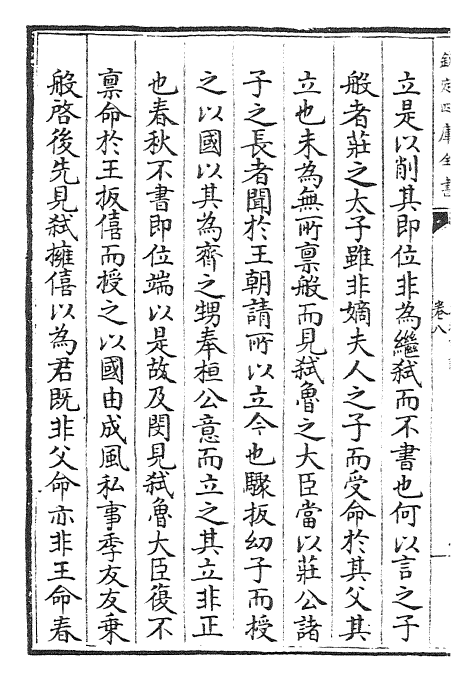 欽定四庫全書
卷八
立是以削其即位非為繼弑而不書也何以言之子
般者莊之太子雖非嫡夫人之子而受命於其父其
立也未為無所禀般而見弑魯之大臣當以莊公諸
子之長者聞於王朝請所以立今也驟扳幼子而授
之以國以其為齊之甥奉桓公意而立之其立非正
也春秋不書即位端以是故及閔見弑魯大臣復不
禀命於王扳僖而授之以國由成風私事季友友乗
般啓後先見弑擁僖以為君既非父命亦非王命春